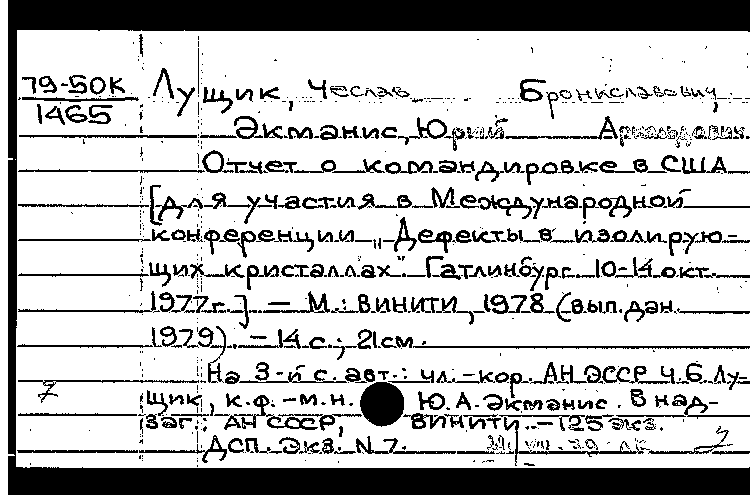 79-50К
1465
Лущик, Чеслав Брониславович
Экманис, Юрий Арнольдович
Отчет о командировке в США
[для участия в Международной
конференции „Дефекты в изолирую-
щих кристаллах". Гатлинбург. 10-14 окт.
1977г.] — М.: ВИНИТИ, 1978 (вып. дан.
1979). — 14 с.; 21см.
На 3-й с. авт.: чл.-кор. АН ЭССР Ч.Б. Лу-
щик, к.ф.-м.н. Ю.А. Экманис. В над-
заг.: АН СССР, ВИНИТИ. — 125 экз.
ДСП. Экз. N 7.